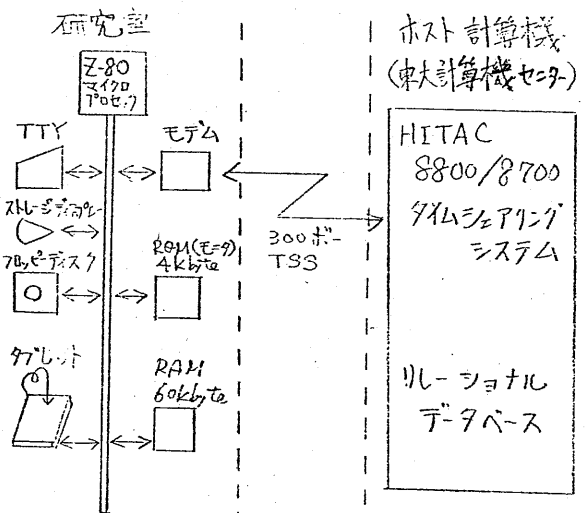 研究室
Z-80
マイクロ
プロセッサ
TTY
モデム
ストレージディスプレー
フロッピーディスク
ROM(モニタ)
4kbyte
タブレット
RAM
60kbyte
300ボー
TSS
ホスト計算機
(東大計算機センター)
HITAC
8800/8700
タイムシェアリング
システム
リレーショナル
データベース